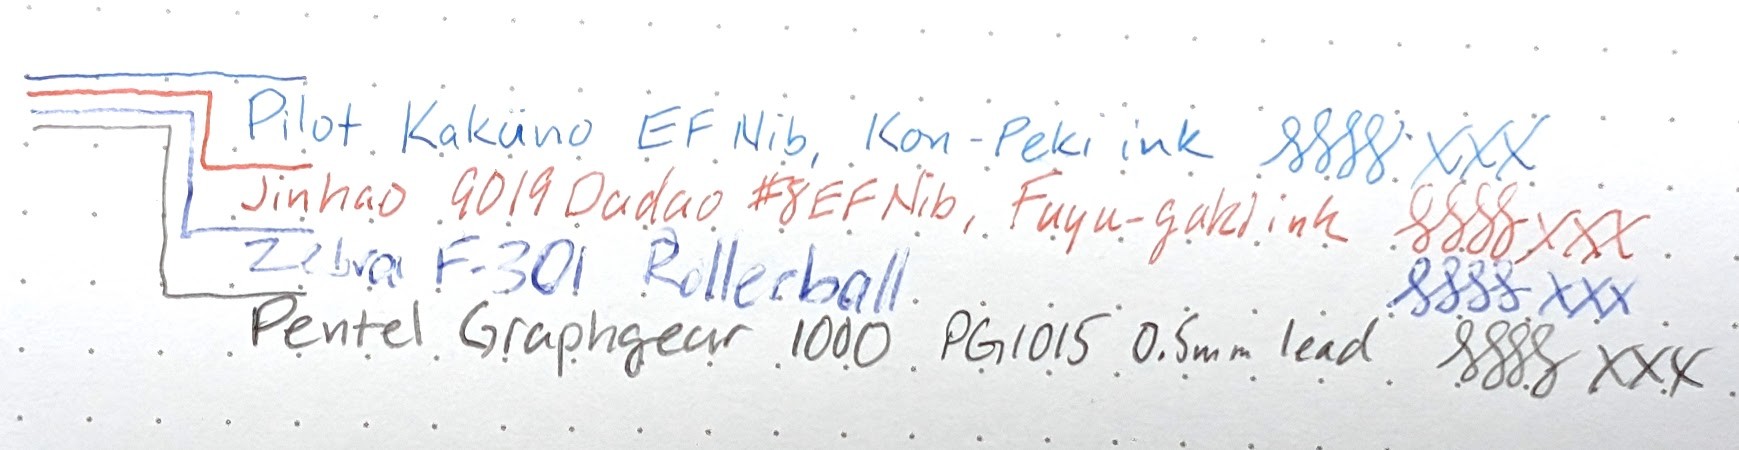 Pilot Kakuno EF Nib, Kon-Peki ink §§§§ XXX
Jinhao 9019 Dadao #8 EF Nib, Fuyu-gaki ink §§§§ XXX
Zebra F-301 Rollerball §§§§ XXX
Pentel Graphgear 1000 PG1015 0.5mm lead §§§§ XXX